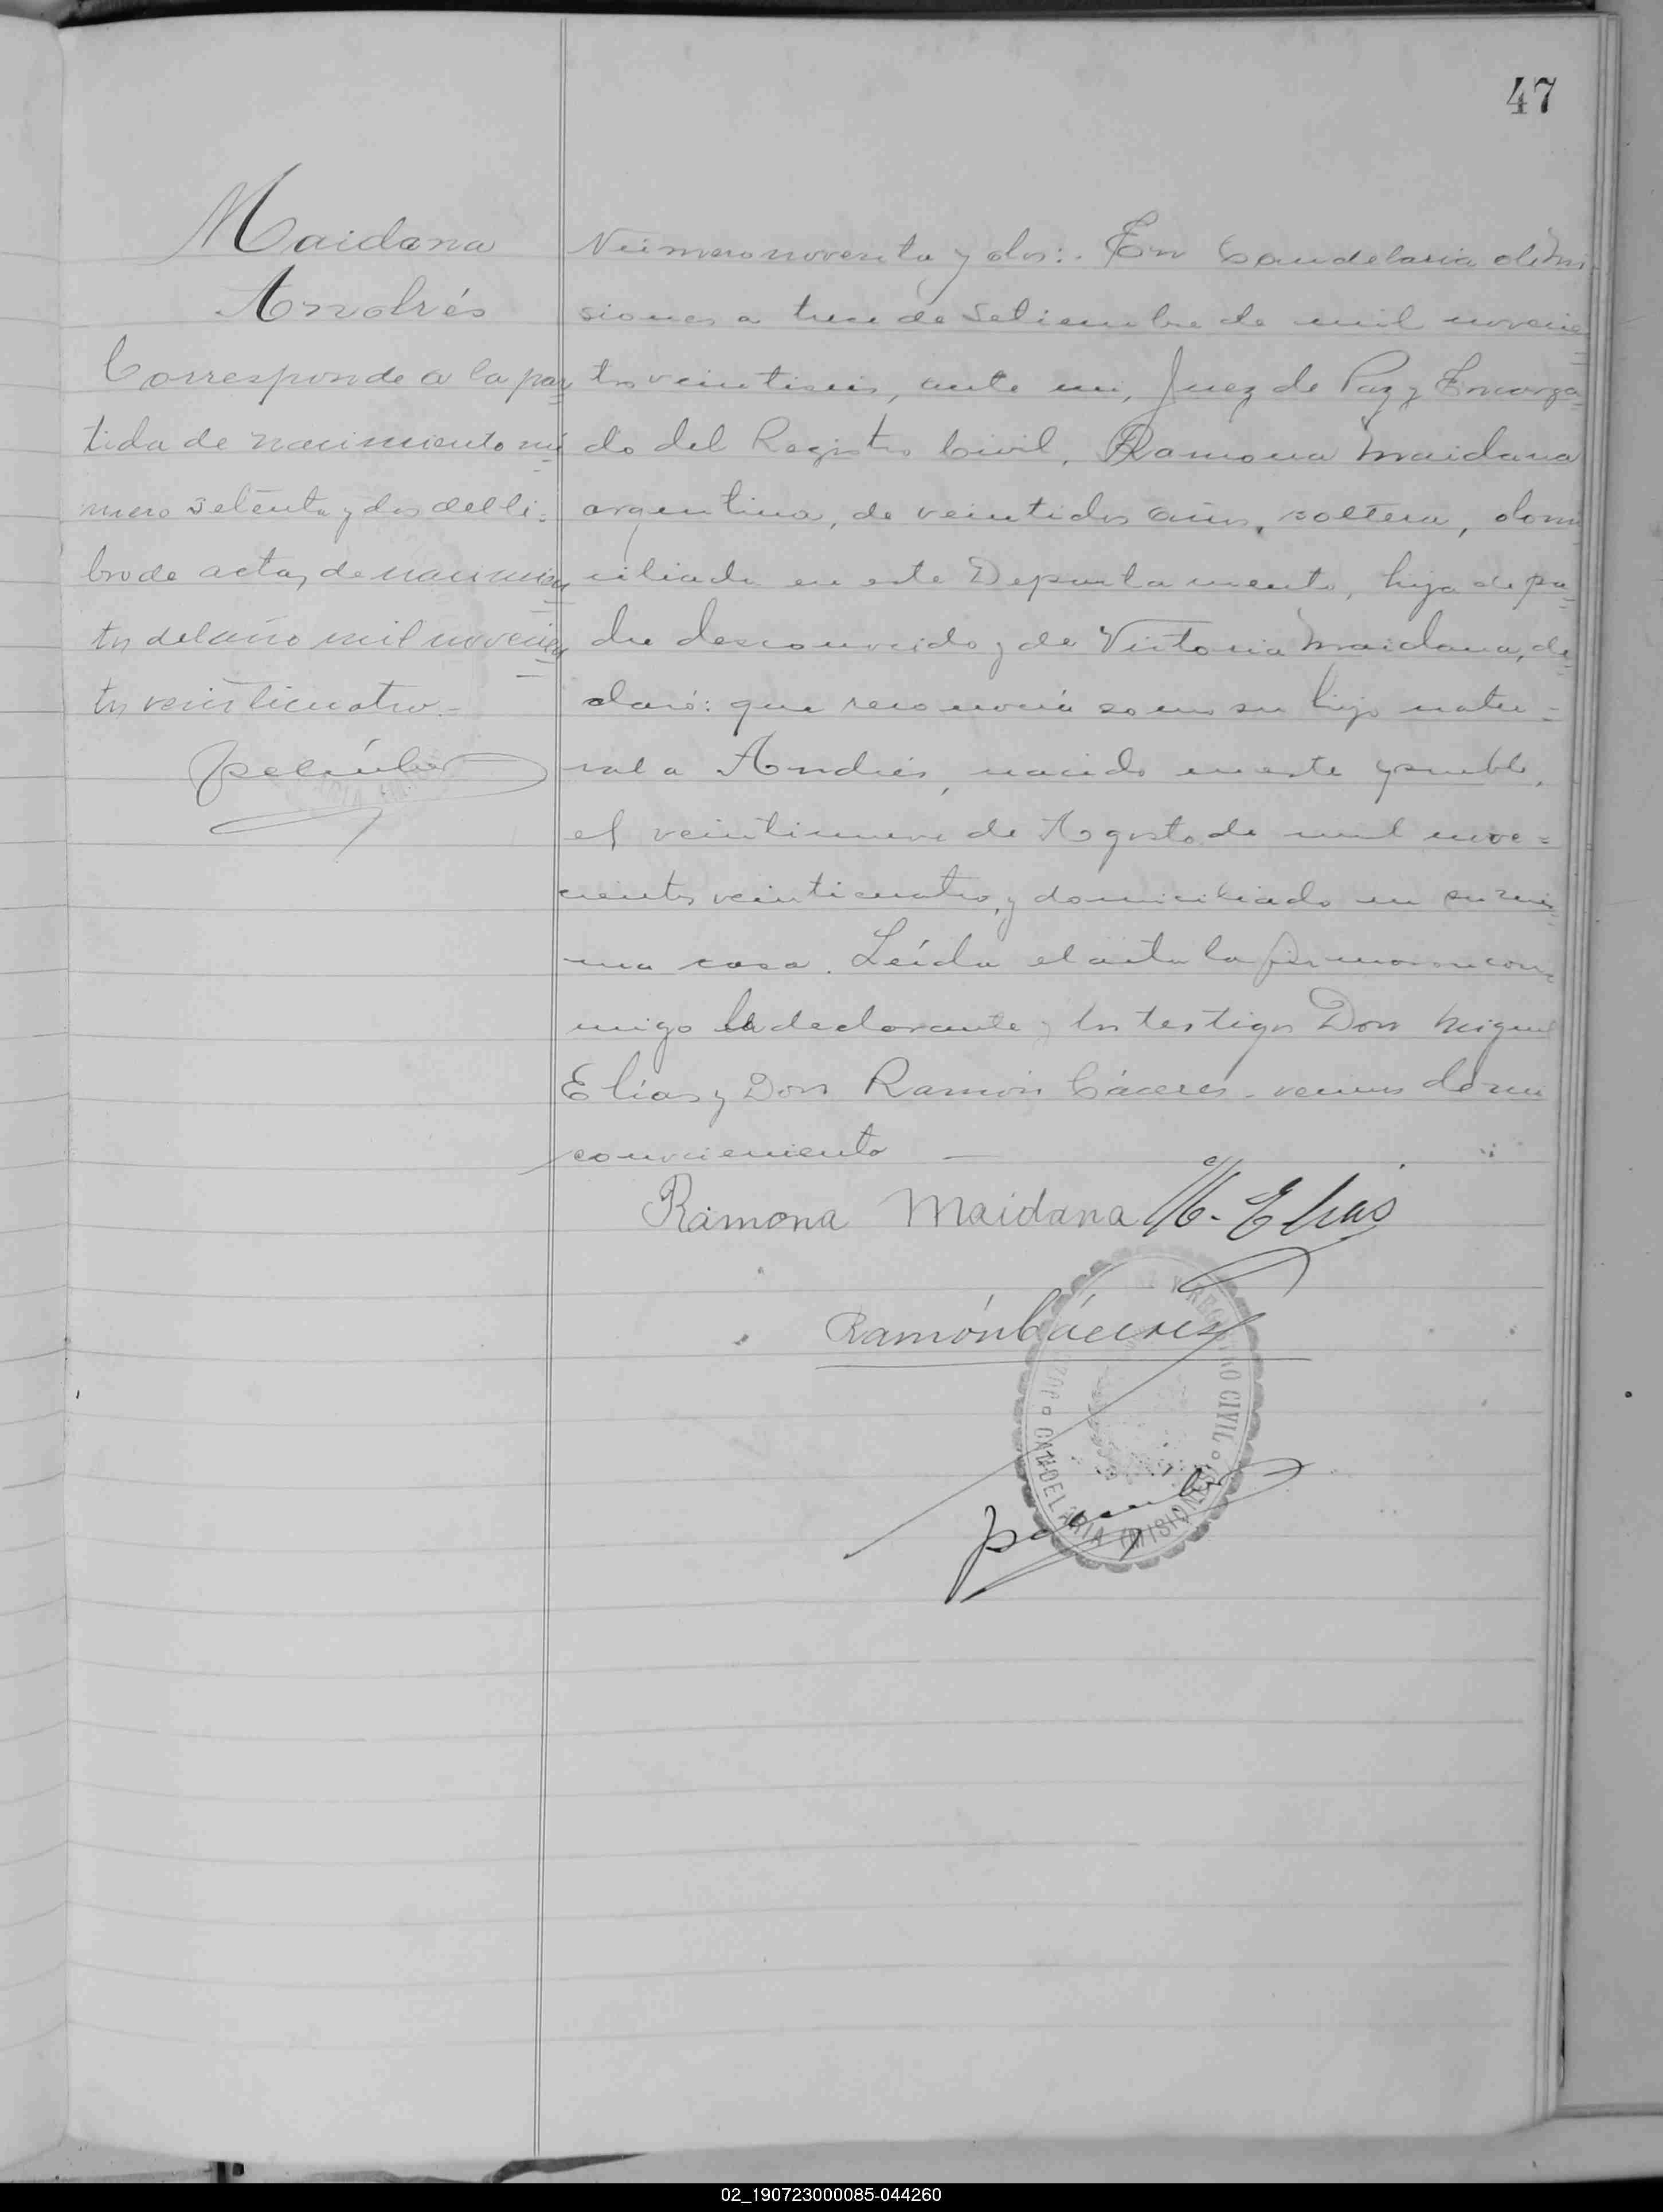 47
Maidana
Andrés
Corresponde a la par
tida de nacimiento nú
mero setenta y dos del li-
bro de actas de nacimien
tos del año mil novecien
tos veinticuatro.-
Número noventa y dos:. En Candelaria de Mi
siones a trece de Setiembre de mil novecien
tos veintiseis, ante mi, Juez de Paz y Encarga
do del Registro Civil, Ramona Maidana
argentina, de veintidos años, soltera, domi
ciliada en este Departamento, hija de pa
dre desconocido y de Victoria Maidana, de
claró: que reconocía como su hijo natu-
ral a Andrés, nacido en este pueblo,
el veintinueve de Agosto de mil nove=
cientos veinticuatro, y domiciliado en su mis
ma casa. Leída el acta la firmaron con
migo la declarante y los testigos Don Miguel
Elías y Don Ramón Cáceres, vecinos de mi
conocimiento —
Ramona Maidana M. Elias
Ramón Cáceres
REGISTRO CIVIL
CANDELARIA (MISIONES)
02_190723000085-044260